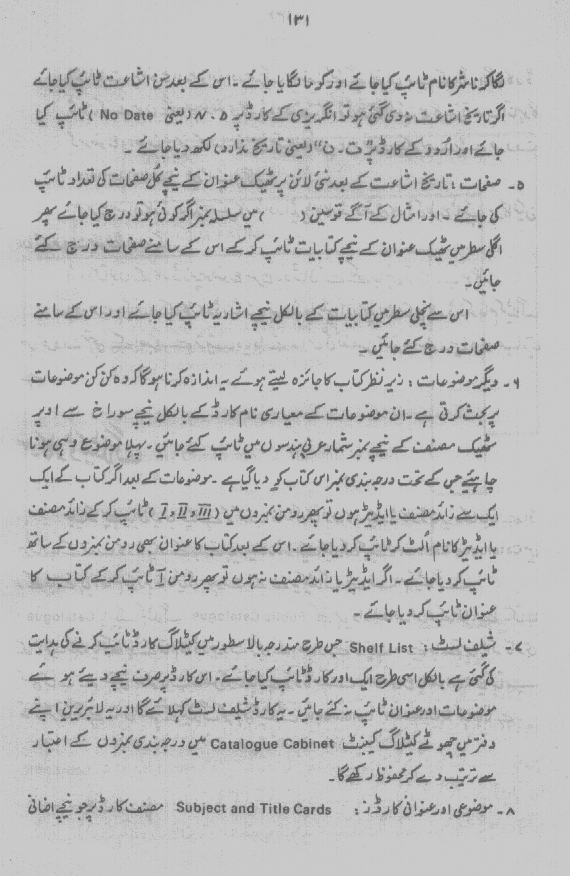 ۱۳۱
لگا کر ناشر کا نام ٹائپ کیا جائے اور کوما لگایا جائے ۔ اس کے بعد سن اشاعت ٹائپ کیا جائے
اگر تاریخ اشاعت نہ دی گئی ہو تو انگریزی کے کارڈ پر N.D (یعنی No Date) ٹائپ کیا
جائے اور اُردو کے کارڈ پر "ت ۔ ن" (یعنی تاریخ ندارد) لکھ دیا جائے ۔
۵۔ صفحات : تاریخ اشاعت کے بعد نئی لائن پر ٹھیک عنوان کے نیچے کُل صفحات کی تعداد ٹائپ
کی جائے ۔ اور امثال کے آگے قوسین ( ) میں سلسلہ نمبر اگر کوئی ہو تو درج کیا جائے پھر
اگلی سطر میں ٹھیک عنوان کے نیچے کتابیات ٹائپ کر کے اس کے سامنے صفحات درج کئے
جائیں ۔
اس سے نچلی سطر میں کتابیات کے بالکل نیچے اشاریہ ٹائپ کیا جائے اور اس کے سامنے
صفحات درج کئے جائیں ۔
۶۔ دیگر موضوعات : زیر نظر کتاب کا جائزہ لیتے ہوئے یہ اندازہ کرنا ہوگا کہ وہ کن کن موضوعات
پر بحث کرتی ہے ۔ ان موضوعات کے معیاری نام کارڈ کے بالکل نیچے سوراخ سے اوپر
ٹھیک مصنف کے نیچے نمبر شمار عربی ہندسوں میں ٹائپ کئے جائیں ۔ پہلا موضوع وہی ہونا
چاہیئے جس کے تحت درجہ بندی نمبر اس کتاب کو دیا گیا ہے ۔ موضوعات کے بعد اگر کتاب کے ایک
ایک سے زائد مصنف یا ایڈیٹر ہوں تو پھر رومن نمبروں میں (I و II و III) ٹائپ کر کے زائد مصنف
یا ایڈیٹر کا نام اُلٹ کر ٹائپ کر دیا جائے ۔ اس کے بعد کتاب کا عنوان بھی رومن نمبروں کے ساتھ
ٹائپ کر دیا جائے ۔ اگر ایڈیٹر یا زائد مصنف نہ ہوں تو پھر رومن I ٹائپ کر کے کتاب کا
عنوان ٹائپ کر دیا جائے ۔
۷۔ شیلف لسٹ : Shelf List جس طرح مندرجہ بالا سطور میں کیٹلاگ کارڈ ٹائپ کرنے کی ہدایت
کی گئی ہے بالکل اسی طرح ایک اور کارڈ ٹائپ کیا جائے ۔ اس کارڈ پر صرف نیچے دیئے ہوئے
موضوعات اور عنوان ٹائپ نہ کئے جائیں ۔ یہ کارڈ شیلف لسٹ کہلائے گا اور یہ لائبریرین اپنے
دفتر میں چھوٹے کیٹلاگ کیبنٹ Catalogue Cabinet میں درجہ بندی نمبروں کے اعتبار
سے ترتیب دے کر محفوظ رکھے گا ۔
۸۔ موضوعی اور عنوانی کارڈز : Subject and Title Cards مصنف کارڈ پر جو نیچے اضافی